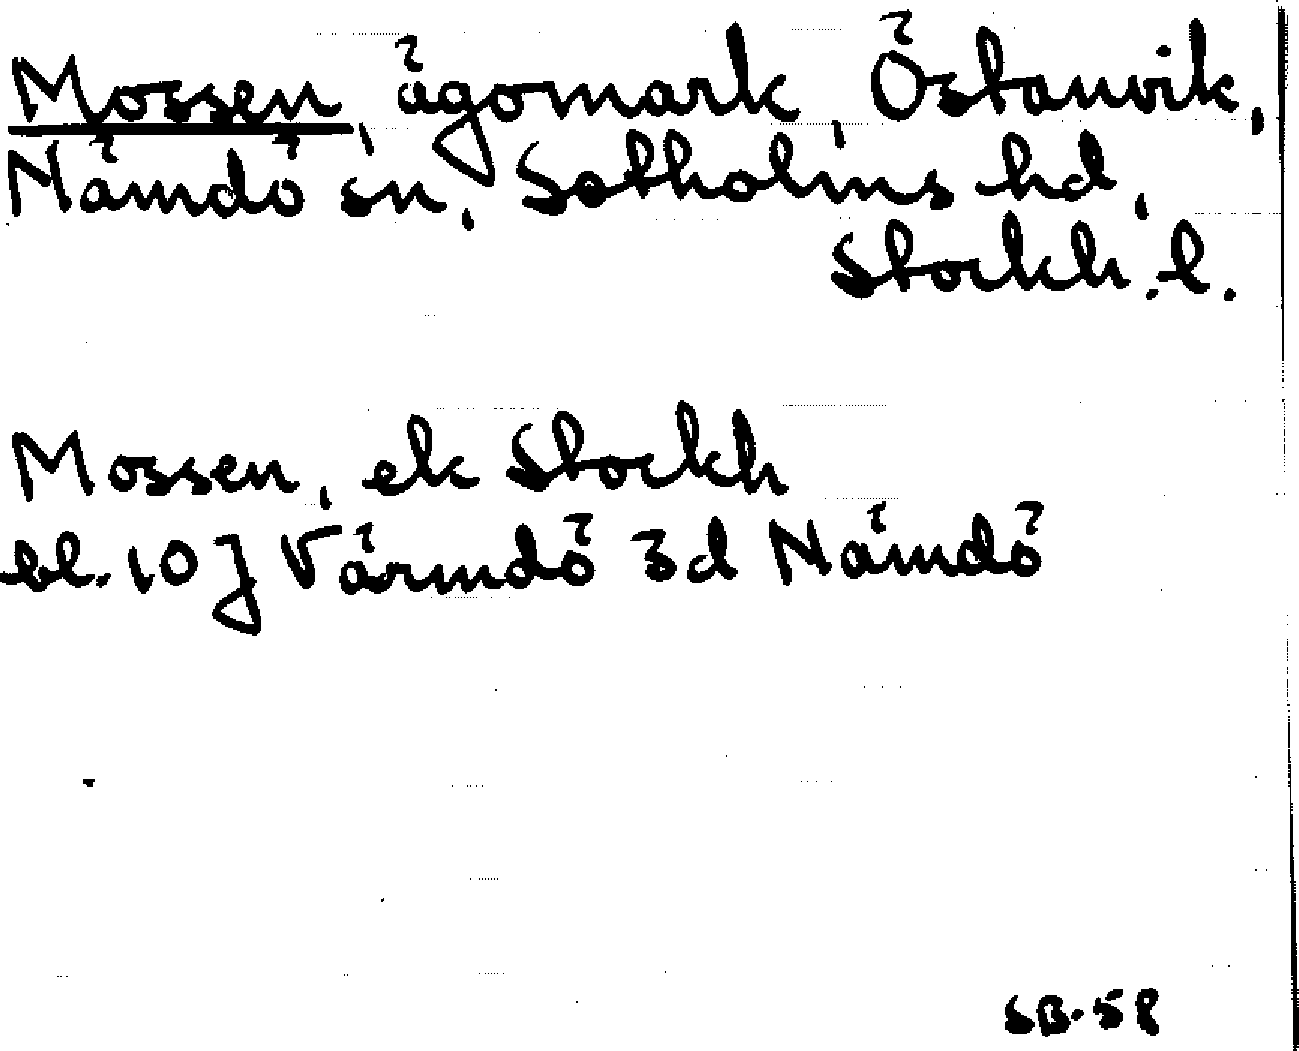 Mossen, ägomark, Östanvik,
Nämdö sn, Sotholms hd,
Stockh. l.
Mossen, ek Stockh
bl. 10 J Värmdö 3d Nämdö
SB-58